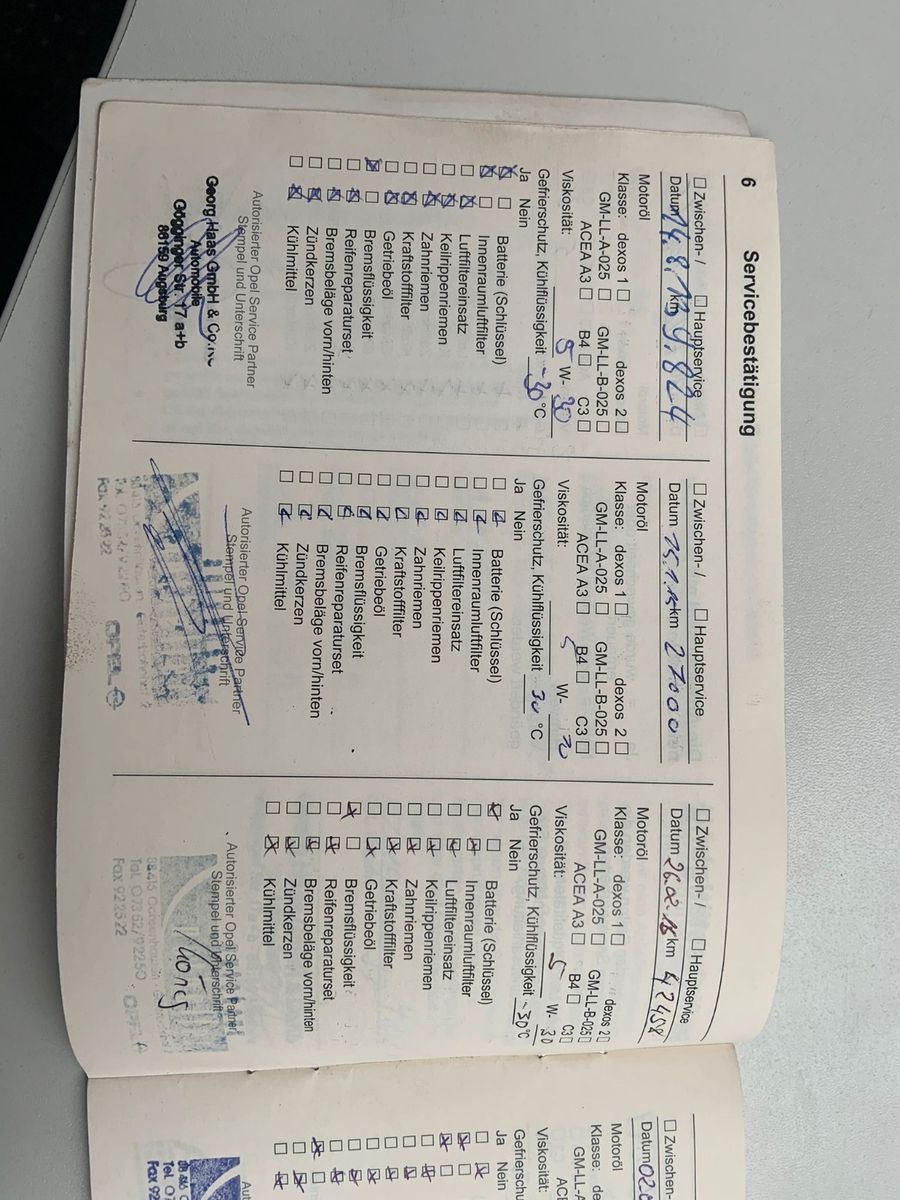 6
Servicebestätigung
☐ Zwischen- / ☐ Hauptservice
Datum 14.8.13 km 9.824
Motoröl
Klasse: dexos 1 ☐ dexos 2 ☐
GM-LL-A-025 ☐ GM-LL-B-025 ☐
ACEA A3 ☐ B4 ☐ C3 ☐
Viskosität: 5 W- 30
Gefrierschutz, Kühlflüssigkeit -30 °C
Ja Nein
☒ ☐ Batterie (Schlüssel)
☒ ☐ Innenraumluftfilter
☐ ☒ Luftfiltereinsatz
☐ ☒ Keilrippenriemen
☐ ☒ Zahnriemen
☐ ☒ Kraftstofffilter
☐ ☒ Getriebeöl
☒ ☐ Bremsflüssigkeit
☐ ☒ Reifenreparaturset
☐ ☒ Bremsbeläge vorn/hinten
☐ ☒ Zündkerzen
☐ ☒ Kühlmittel
Autorisierter Opel Service Partner
Stempel und Unterschrift
Georg Haas GmbH & Co.
Automobile
Gögginger Str. 17 a+b
86159 Augsburg
☐ Zwischen- / ☐ Hauptservice
Datum 15.1.15 km 27000
Motoröl
Klasse: dexos 1 ☐ dexos 2 ☐
GM-LL-A-025 ☐ GM-LL-B-025 ☐
ACEA A3 ☐ B4 ☐ C3 ☐
Viskosität: 5 W-
Gefrierschutz, Kühlflüssigkeit 30 °C
Ja Nein
☐ ☒ Batterie (Schlüssel)
☐ ☒ Innenraumluftfilter
☐ ☒ Luftfiltereinsatz
☐ ☒ Keilrippenriemen
☐ ☒ Zahnriemen
☐ ☒ Kraftstofffilter
☐ ☒ Getriebeöl
☐ ☒ Bremsflüssigkeit
☐ ☒ Reifenreparaturset
☐ ☒ Bremsbeläge vorn/hinten
☐ ☒ Zündkerzen
☐ ☒ Kühlmittel
Autorisierter Opel Service Partner
Stempel und Unterschrift
OPEL
☐ Zwischen- / ☐ Hauptservice
Datum km 42458
Motoröl
Klasse: dexos 1 ☐ dexos 2 ☐
GM-LL-A-025 ☐ GM-LL-B-025 ☐
ACEA A3 ☐ B4 ☐ C3 ☐
Viskosität: 5 W- 30
Gefrierschutz, Kühlflüssigkeit -30 °C
Ja Nein
☒ ☐ Batterie (Schlüssel)
☐ ☒ Innenraumluftfilter
☐ ☒ Luftfiltereinsatz
☐ ☒ Keilrippenriemen
☐ ☒ Zahnriemen
☐ ☒ Kraftstofffilter
☐ ☒ Getriebeöl
☒ ☐ Bremsflüssigkeit
☐ ☒ Reifenreparaturset
☐ ☒ Bremsbeläge vorn/hinten
☐ ☒ Zündkerzen
☐ ☒ Kühlmittel
Autorisierter Opel Service Partner
Stempel und Unterschrift
Fax 922522
☐ Zwischen-
Datum 02.
Motoröl
Klasse: de
GM-LL-
Viskosität:
Gefrierschu
Ja Nein